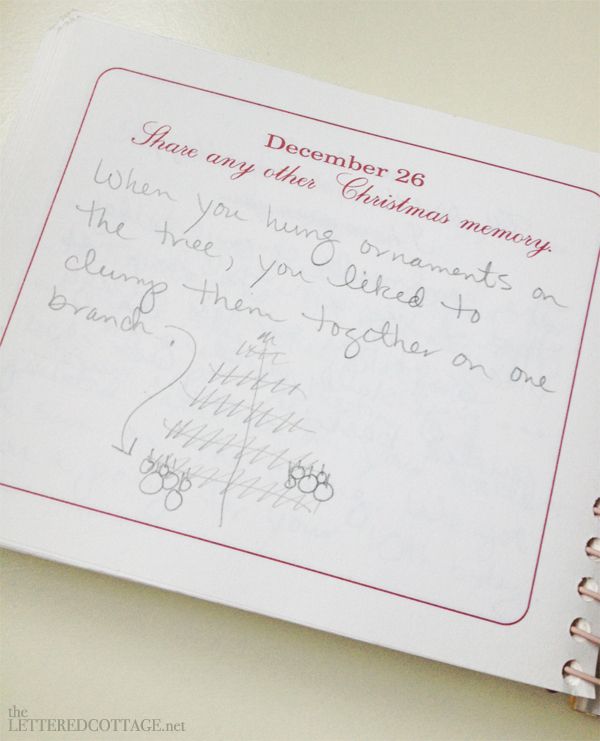 December 26
Share any other Christmas memory.
When you hung ornaments on
the tree, you liked to
clump them together on one
branch.
the
LETTEREDCOTTAGE.net